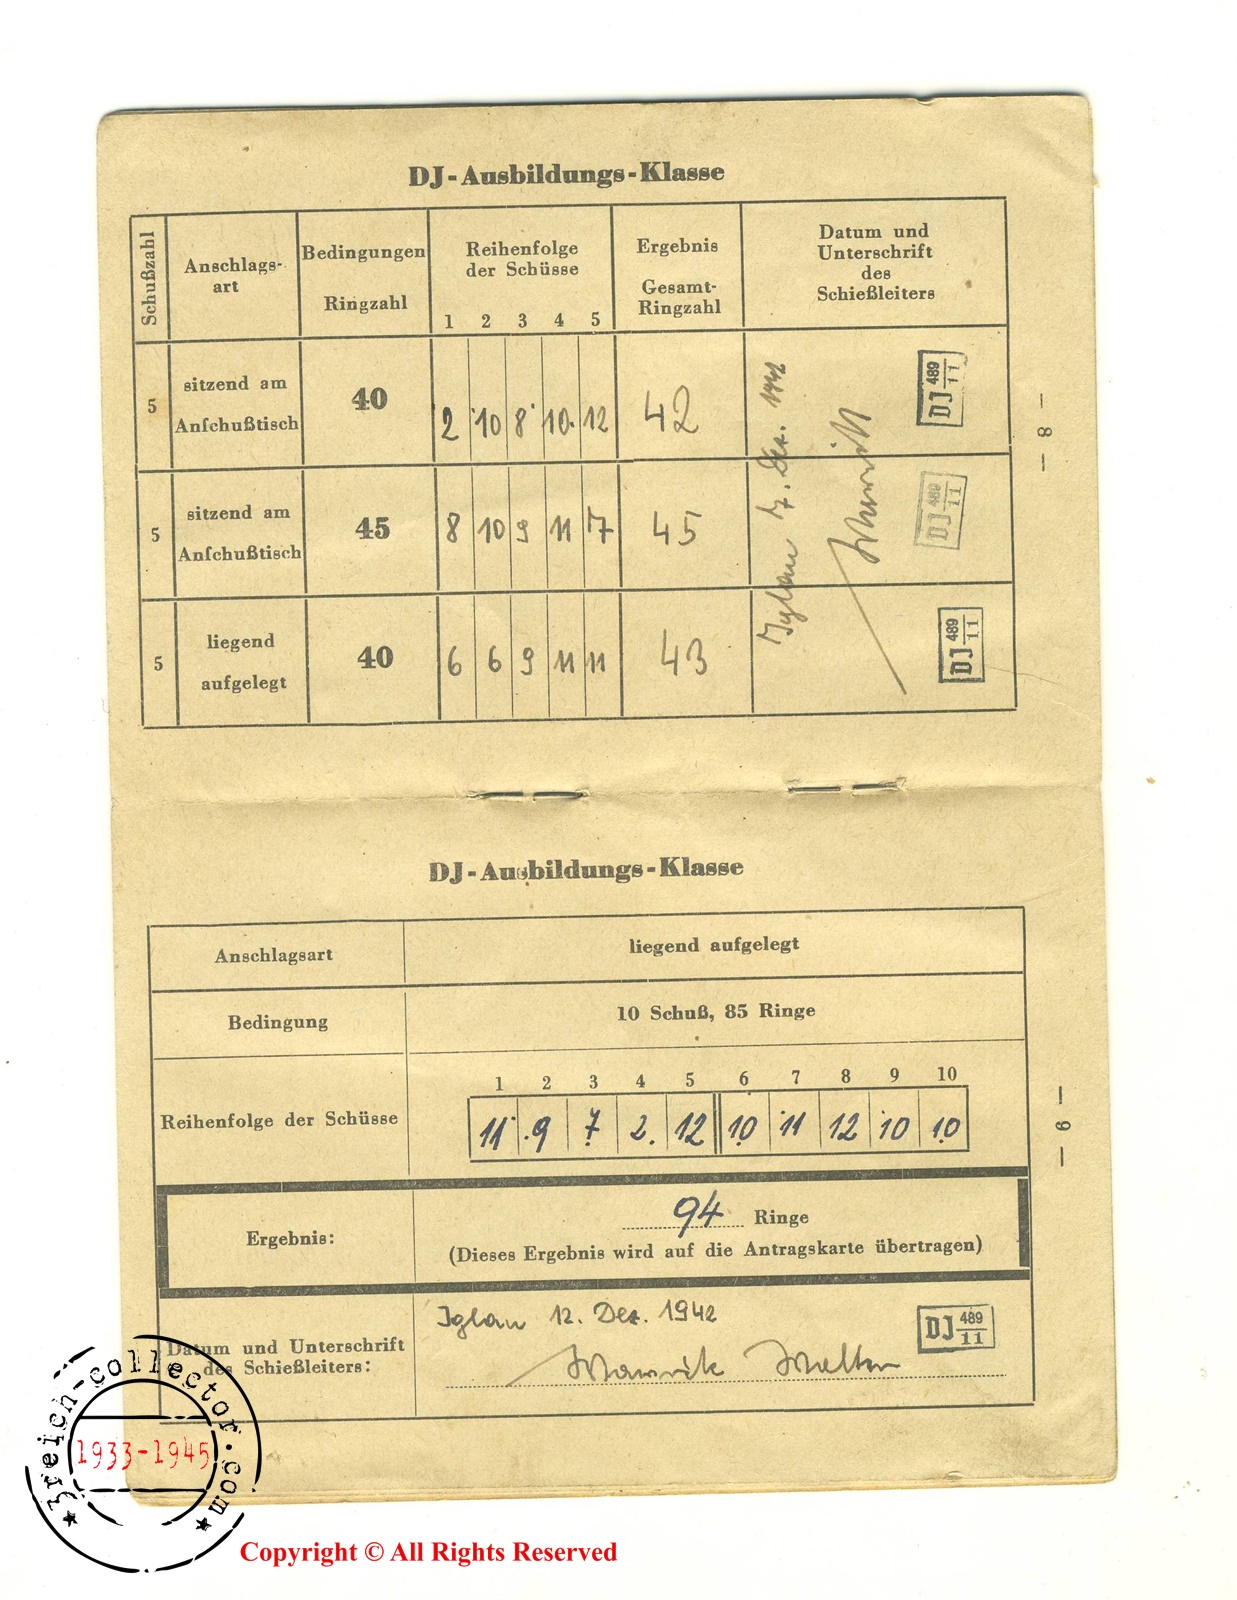 DJ-Ausbildungs-Klasse
Schußzahl
Anschlags-
art
Bedingungen
Ringzahl
Reihenfolge
der Schüsse
1 2 3 4 5
Ergebnis
Gesamt-
Ringzahl
Datum und
Unterschrift
des
Schießleiters
5
sitzend am
Anſchußtisch
40
2 10 8 10 12
42
DJ 489/11
5
sitzend am
Anſchußtisch
45
8 10 9 11 7
45
DJ 489/11
5
liegend
aufgelegt
40
6 6 9 11 11
43
DJ 489/11
Iglau 7. Dez. 1942
— 8 —
DJ-Ausbildungs-Klasse
Anschlagsart
liegend aufgelegt
Bedingung
10 Schuß, 85 Ringe
Reihenfolge der Schüsse
1 2 3 4 5 6 7 8 9 10
11 9 7 2 12 10 11 12 10 10
Ergebnis:
94 Ringe
(Dieses Ergebnis wird auf die Antragskarte übertragen)
Datum und Unterschrift
des Schießleiters:
Iglau 12. Dez. 1942
DJ 489/11
Walter
— 9 —
★ 3reich-collector.com ★
1933-1945
Copyright © All Rights Reserved